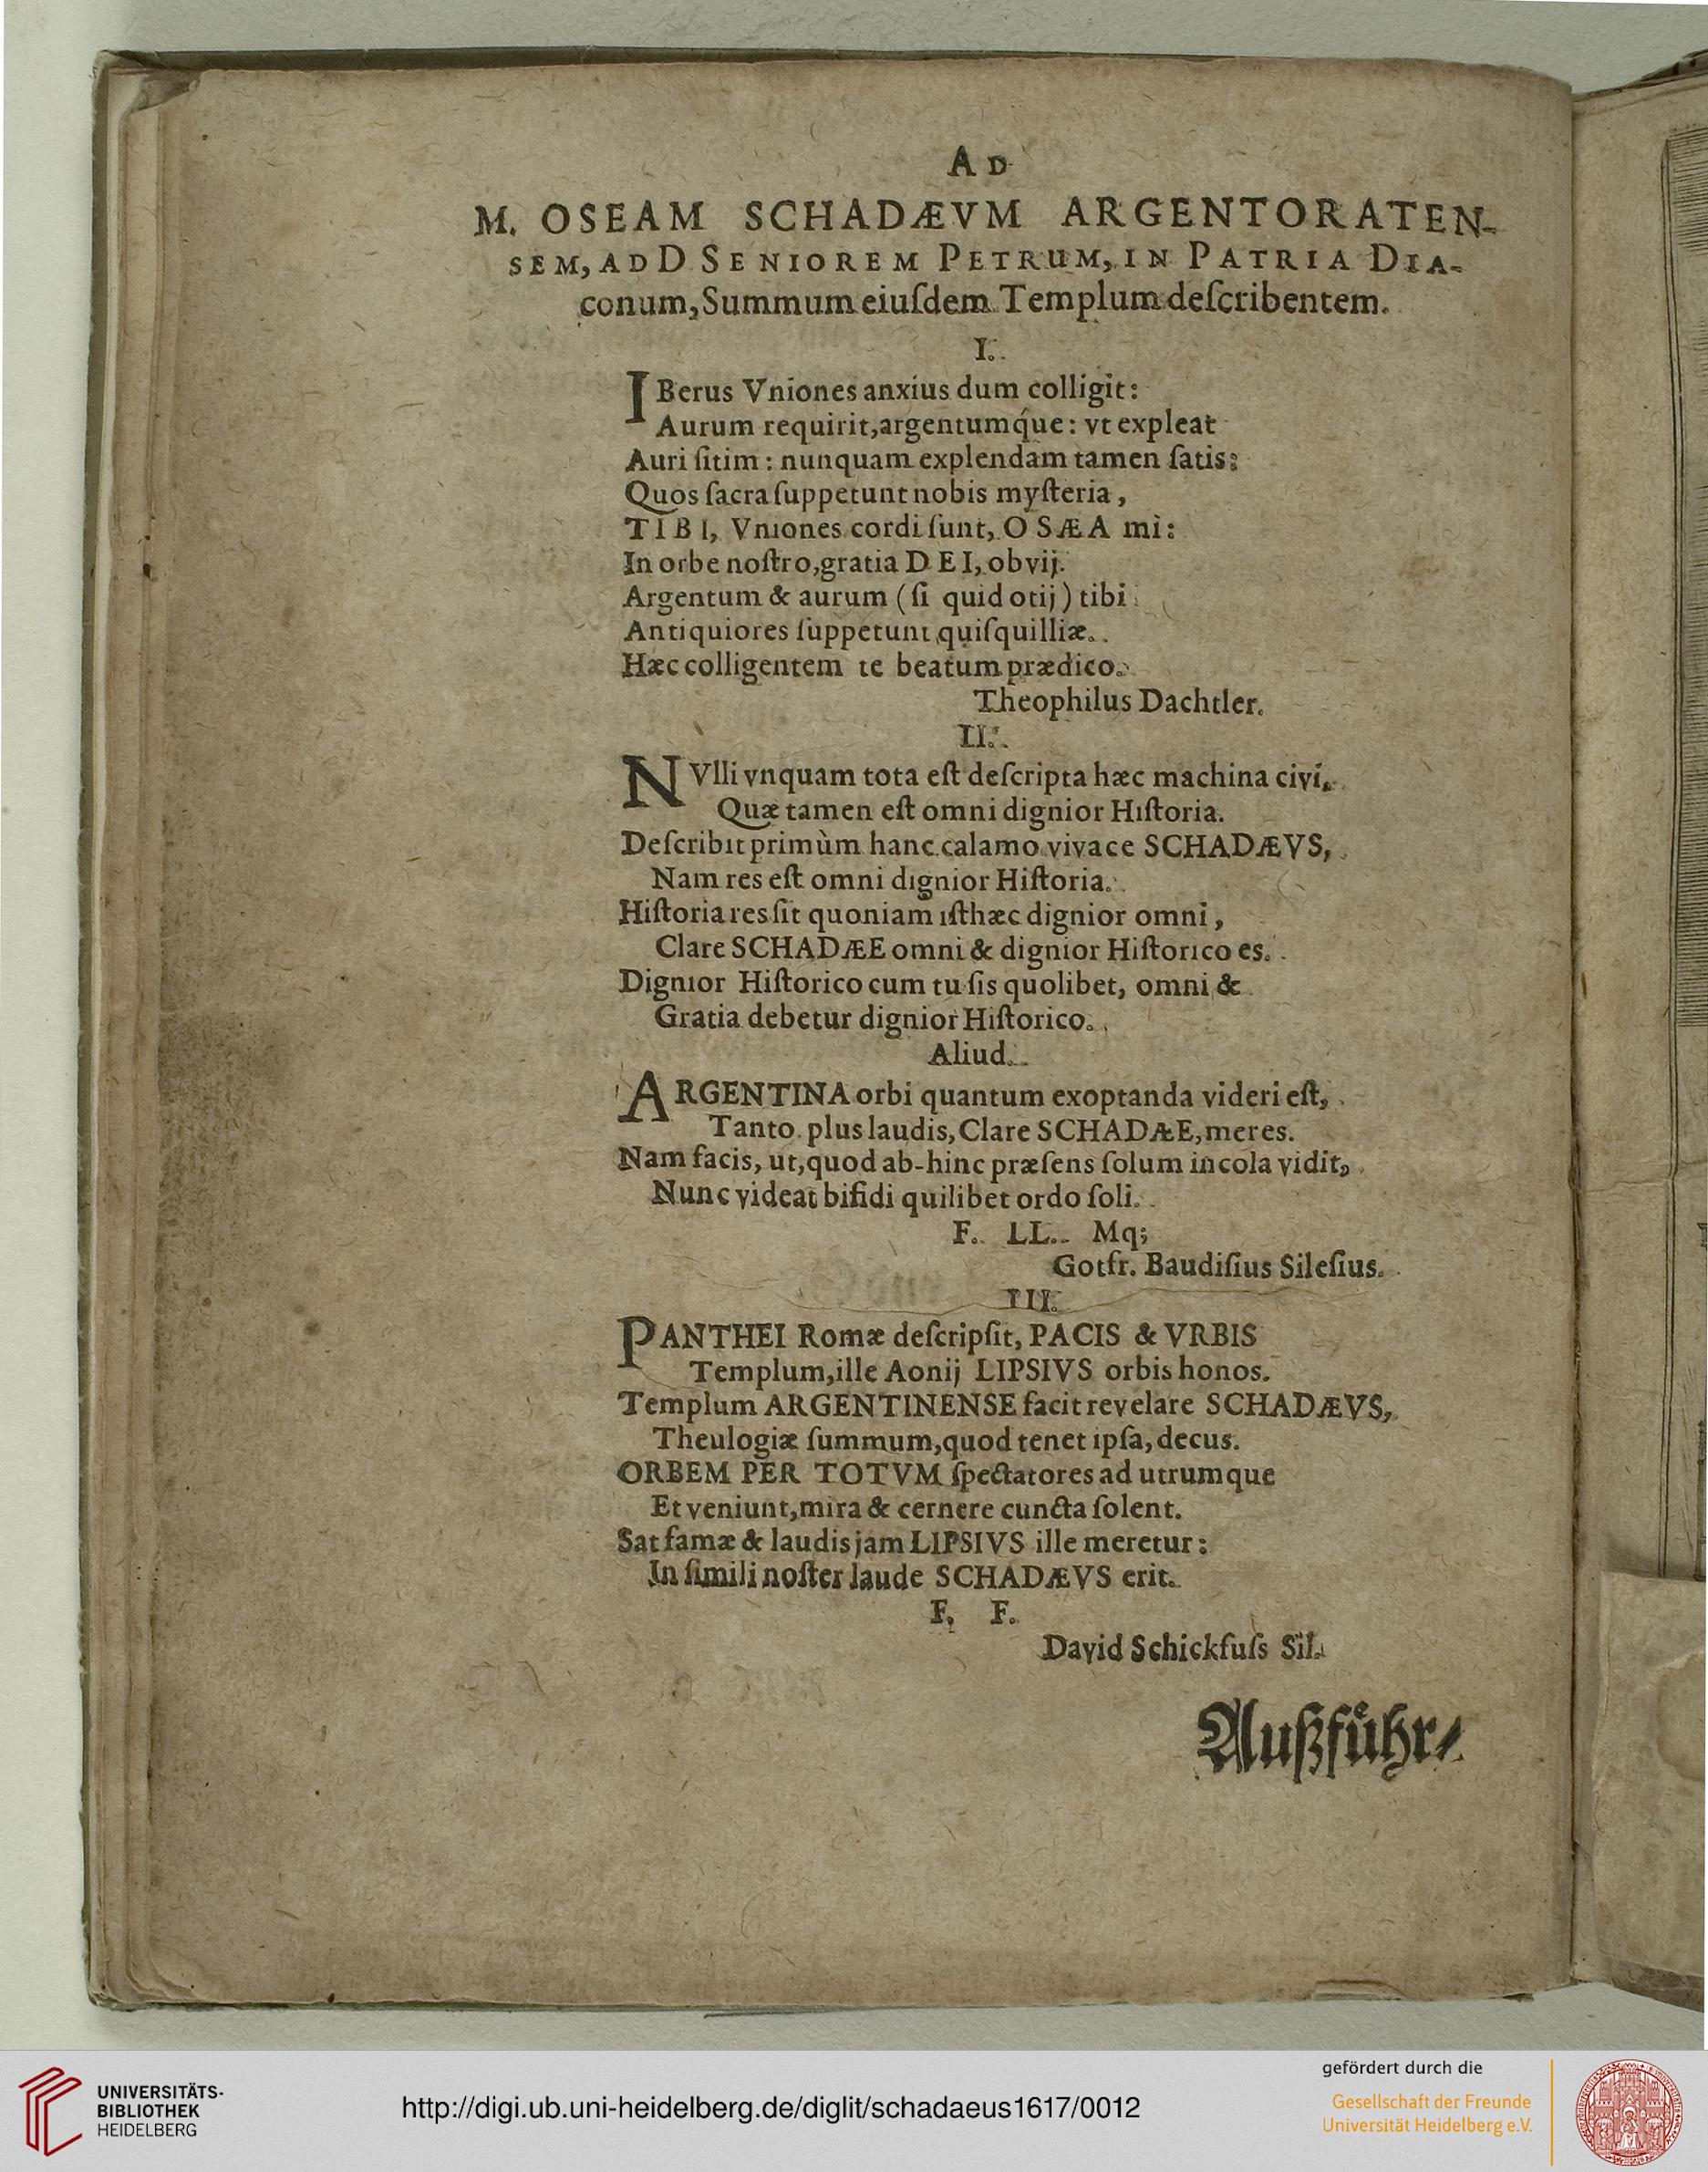 AD
M. OSEAM SCHADÆVM ARGENTORATEN-
SEM, AD D SENIOREM PETRUM, IN PATRIA DIA-
conum, Summum eiuſdem Templum deſcribentem.
I.
IBerus Vniones anxius dum colligit:
Aurum requirit, argentumq́ue: vt expleat
Auri ſitim: nunquam explendam tamen ſatis:
Quos ſacra ſuppetunt nobis myſteria,
TIBI, Vniones cordi ſunt, OSÆA mi:
In orbe noſtro, gratia DEI, obvij.
Argentum & aurum (ſi quid otij) tibi
Antiquiores ſuppetunt quiſquilliæ.
Hæc colligentem te beatum prædico.
Theophilus Dachtler.
II.
NVlli vnquam tota eſt deſcripta hæc machina civi,
Quæ tamen eſt omni dignior Hiſtoria.
Deſcribit primùm hanc calamo vivace SCHADÆVS,
Nam res eſt omni dignior Hiſtoria.
Hiſtoria res ſit quoniam iſthæc dignior omni,
Clare SCHADÆE omni & dignior Hiſtorico es.
Dignior Hiſtorico cum tu ſis quolibet, omni &
Gratia debetur dignior Hiſtorico.
Aliud.
ARGENTINA orbi quantum exoptanda videri eſt,
Tanto plus laudis, Clare SCHADÆE, meres.
Nam facis, ut, quod ab-hinc præſens ſolum incola vidit,
Nunc videat bifidi quilibet ordo ſoli.
F. LL. Mq;
Gotfr. Baudiſius Sileſius.
III.
PANTHEI Romæ deſcripſit, PACIS & VRBIS
Templum, ille Aonij LIPSIVS orbis honos.
Templum ARGENTINENSE facit revelare SCHADÆVS,
Theulogiæ ſummum, quod tenet ipſa, decus.
ORBEM PER TOTVM ſpectatores ad utrumque
Et veniunt, mira & cernere cuncta ſolent.
Sat famæ & laudis jam LIPSIVS ille meretur:
In ſimili noſter laude SCHADÆVS erit.
F. F.
David Schickfuſs Sil.
Außfuͤhr⸗
UNIVERSITÄTS-
BIBLIOTHEK
HEIDELBERG
http://digi.ub.uni-heidelberg.de/diglit/schadaeus1617/0012
gefördert durch die
Gesellschaft der Freunde
Universität Heidelberg e.V.